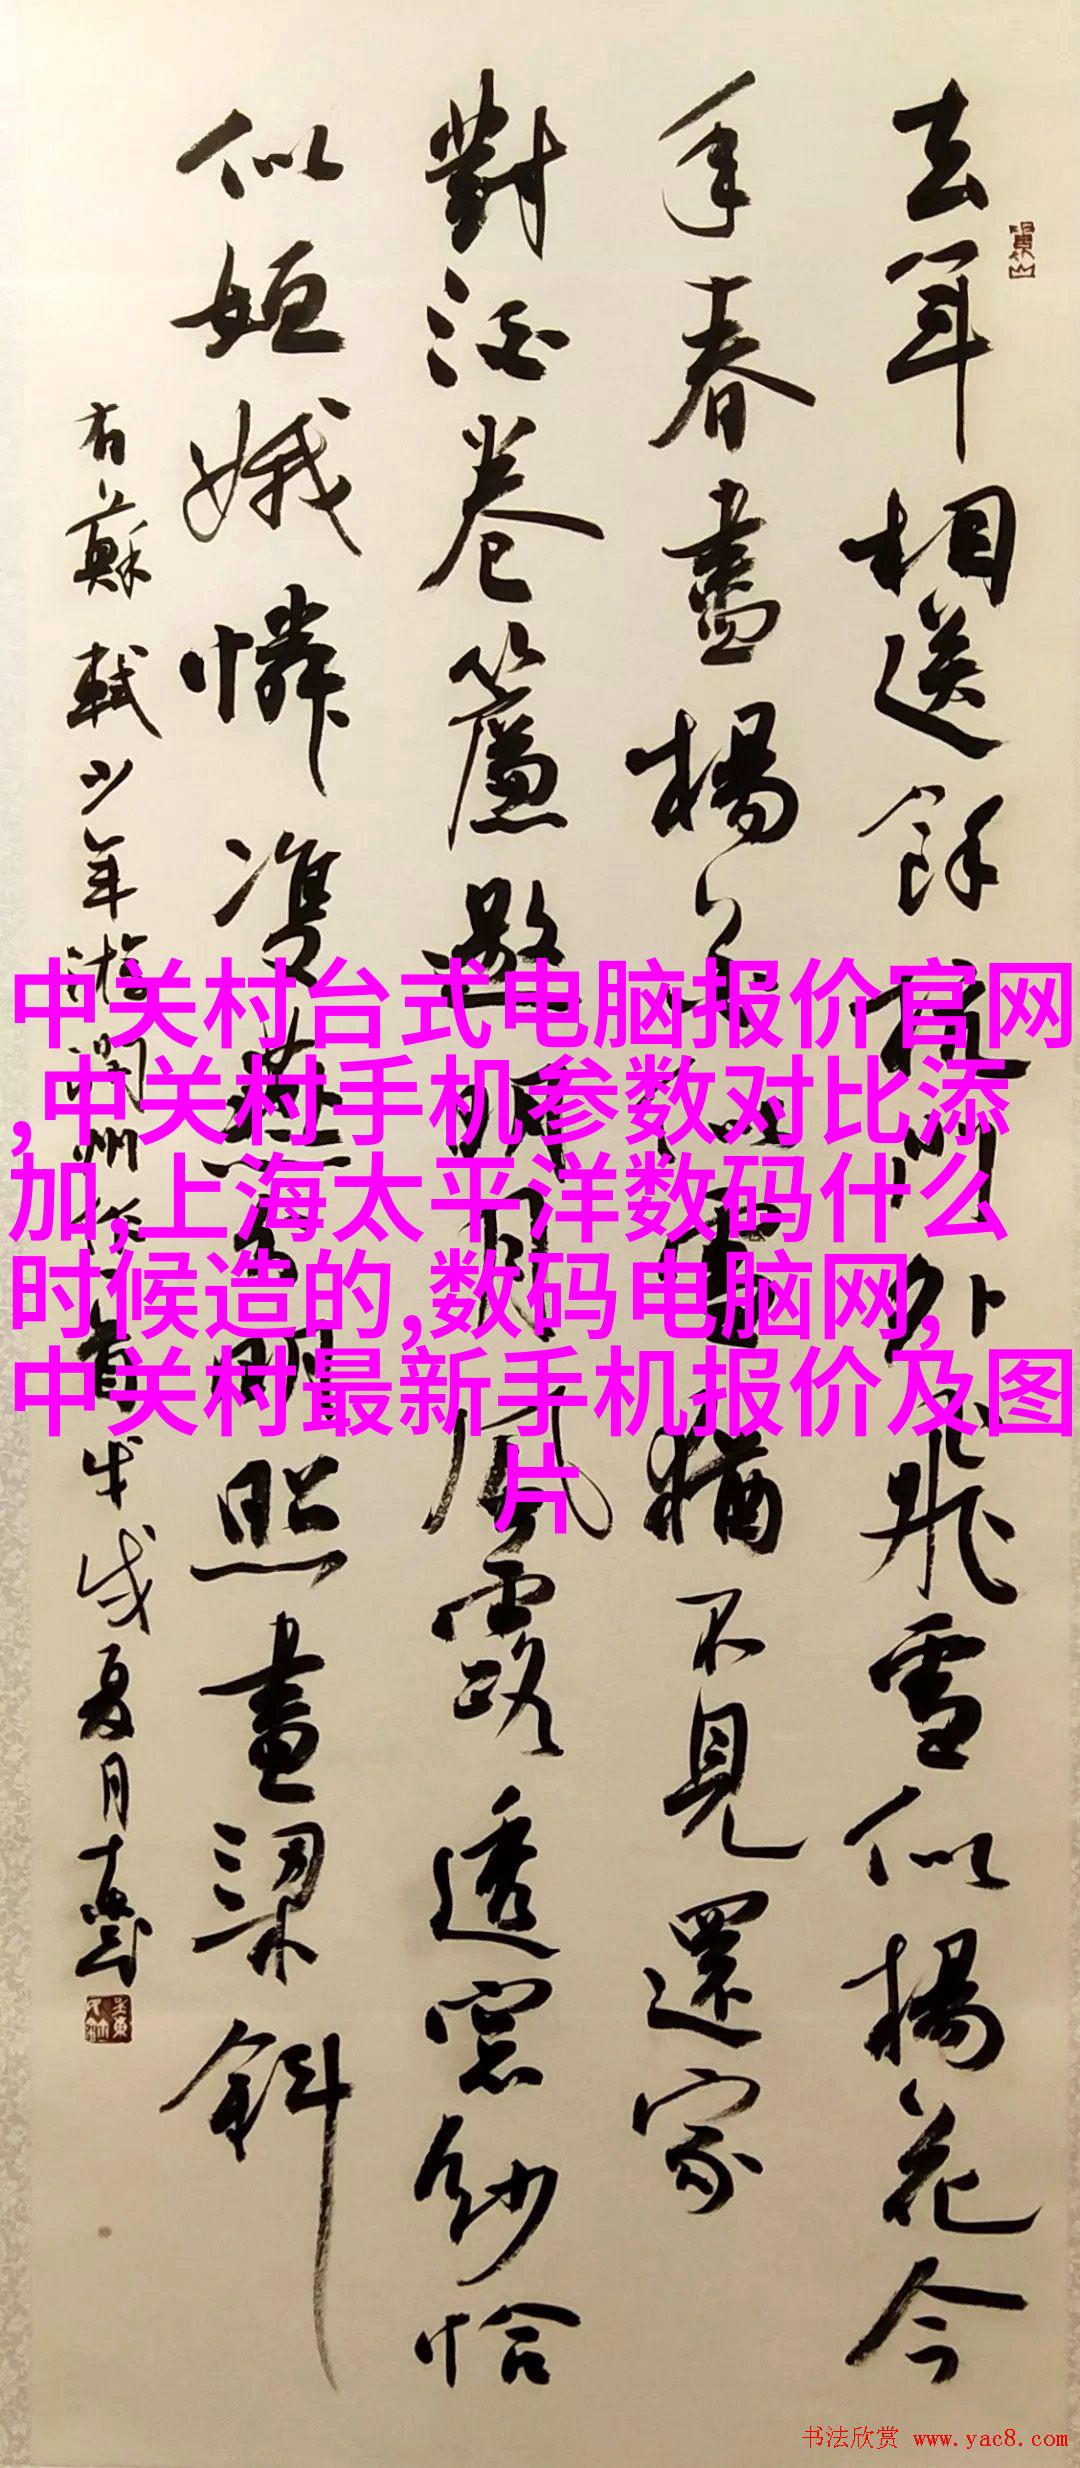 去年相送餘杭門外飛雪似楊花今
年春盡楊花似雪猶不見還家
對酒卷簾邀明月風露透窗紗恰
似姮娥憐雙燕分明照畫梁斜
右蘇軾少年游潤州作首戊戌夏月
中关村台式电脑报价官网
,中关村手机参数对比添
加,上海太平洋数码什么
时候造的,数码电脑网,
中关村最新手机报价及图
片
书法欣赏 www.yac8.com